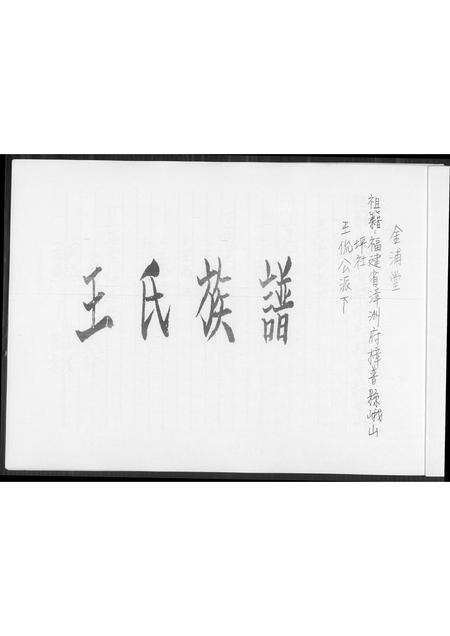 金浦堂
祖籍福建省漳洲府縣峨山
坪社
王公派下
王氏族譜